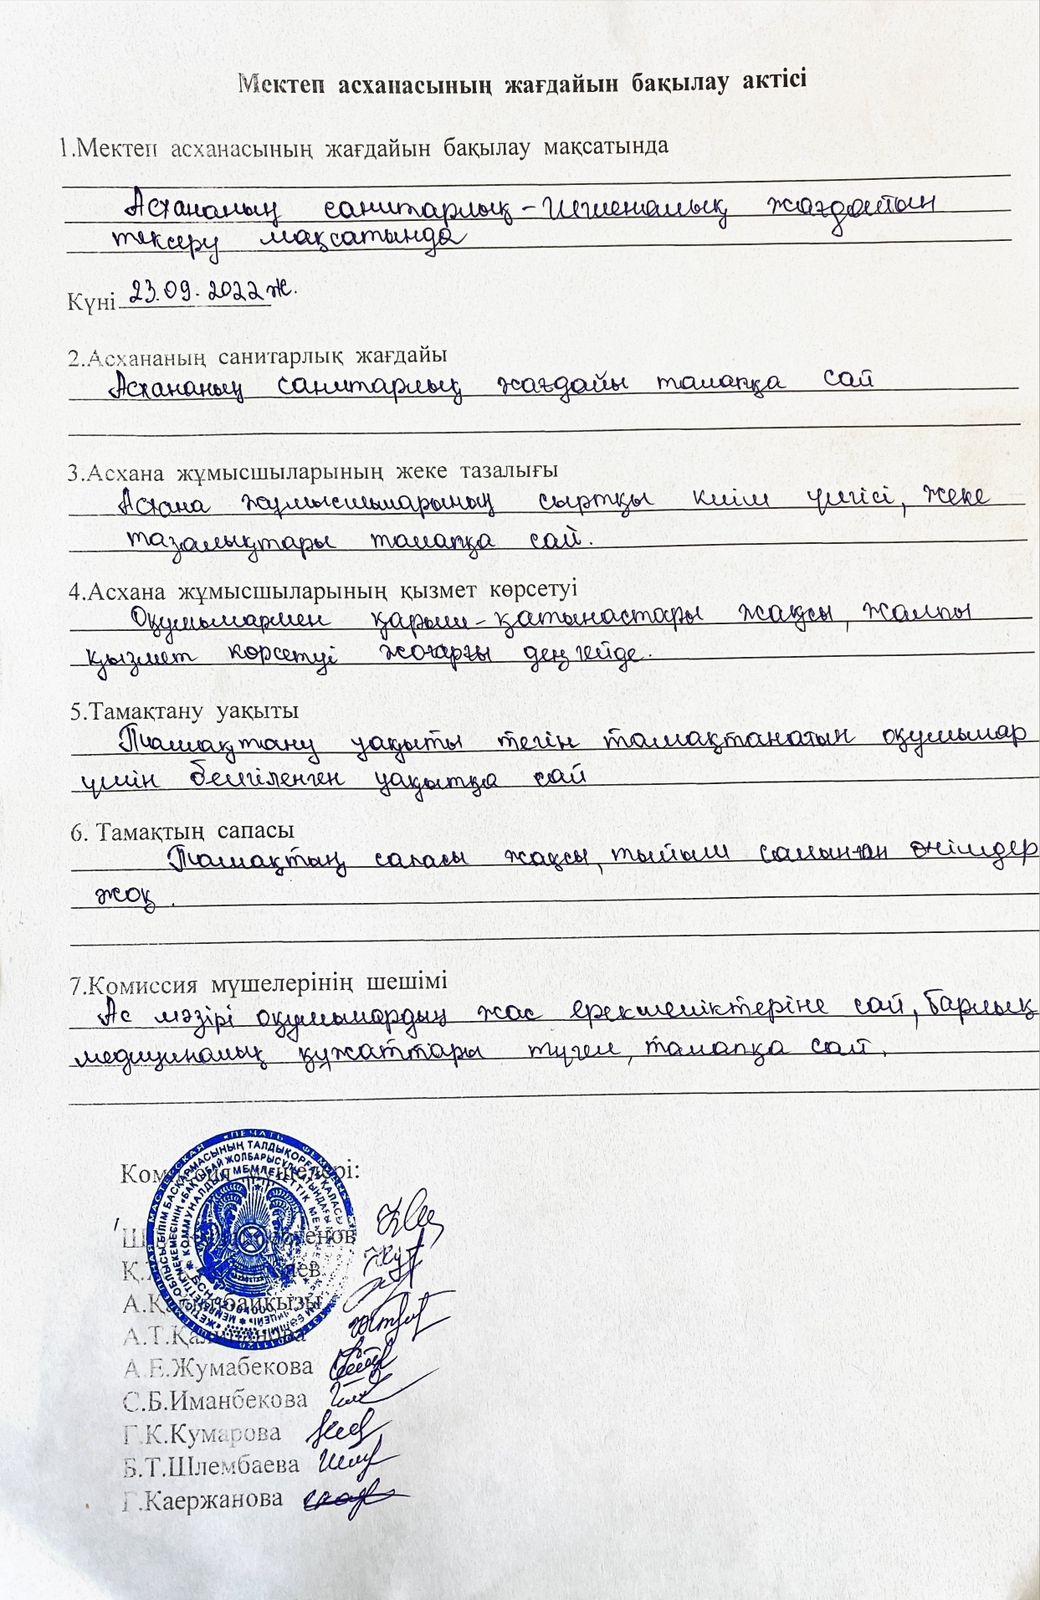 Мектеп асханасының жағдайын бақылау актісі
1.Мектеп асханасының жағдайын бақылау мақсатында
Асхананың санитарлық-гигиеналық жағдайын
тексеру мақсатында
Күні 23.09.2022ж.
2.Асхананың санитарлық жағдайы
Асхананың санитарлық жағдайы талапқа сай
3.Асхана жұмысшыларының жеке тазалығы
Асхана жұмысшыларының сыртқы киім үлгісі, жеке
тазалықтары талапқа сай.
4.Асхана жұмысшыларының қызмет көрсетуі
Оқушылармен қарым-қатынастары жақсы, жалпы
қызмет көрсетуі жоғарғы деңгейде.
5.Тамақтану уақыты
Тамақтану уақыты тегін тамақтанатын оқушылар
үшін белгіленген уақытқа сай
6. Тамақтың сапасы
Тамақтың сапасы жақсы, тыйым салынған өнімдер
жоқ.
7.Комиссия мүшелерінің шешімі
Ас мәзірі оқушылардың жас ерекшеліктеріне сай, барлық
медициналық құжаттары түгел, талапқа сай.
Комиссия мүшелері:
А.Т.
А.Е.Жумабекова
С.Б.Иманбекова
Г.К.Кумарова
Б.Т.Шлембаева
Г.Каержанова